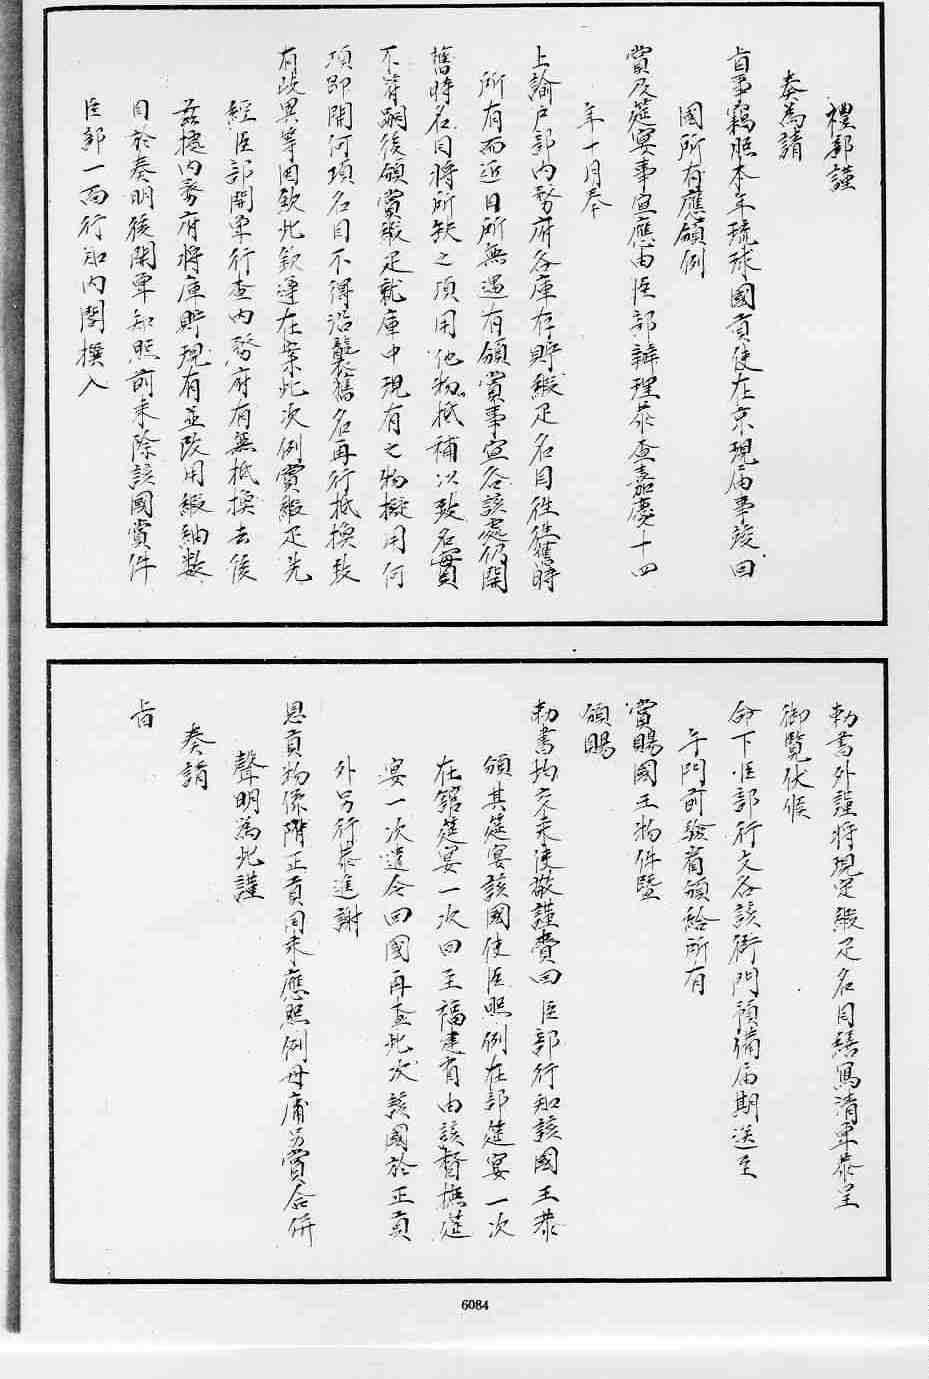 禮部謹
奏為請
旨事竊照本年琉球國貢使在京現屆事竣回
國所有應領例
賞及筵宴事宜應由臣部辦理恭查嘉慶十四
年十月奉
上諭戶部內務府各庫存貯緞疋名目徃徃舊時
所有而近日所無遇有頒賞事宜各該處仍開
舊時名目將所缺之項用他物抵補以致名實
不符嗣後頒賞緞疋就庫中現有之物擬用何
項即開何項名目不得沿襲舊名再行抵換致
有歧異等因欽此欽遵在案此次例賞緞疋先
經臣部開單行查內務府有無抵換去後
茲據內務府將庫貯現有並改用緞紬數
目於奏明後開單知照前來除該國賞件
臣部一面行知內閣撰入
勅書外謹將現定緞疋名目繕寫清單恭呈
御覽伏候
命下臣部行文各該衙門預備屆期送至
午門前驗看頒給所有
賞賜國王物件暨
頒賜
勅書均交來使敬謹賫回臣部行知該國王恭
領其筵宴該國使臣照例在部筵宴一次
在館筵宴一次回至福建省由該督撫筵
宴一次遣令回國再查此次該國於正貢
外另行恭進謝
恩貢物係隨正貢同來應照例毋庸另賞合併
聲明為此謹
奏請
旨
6084